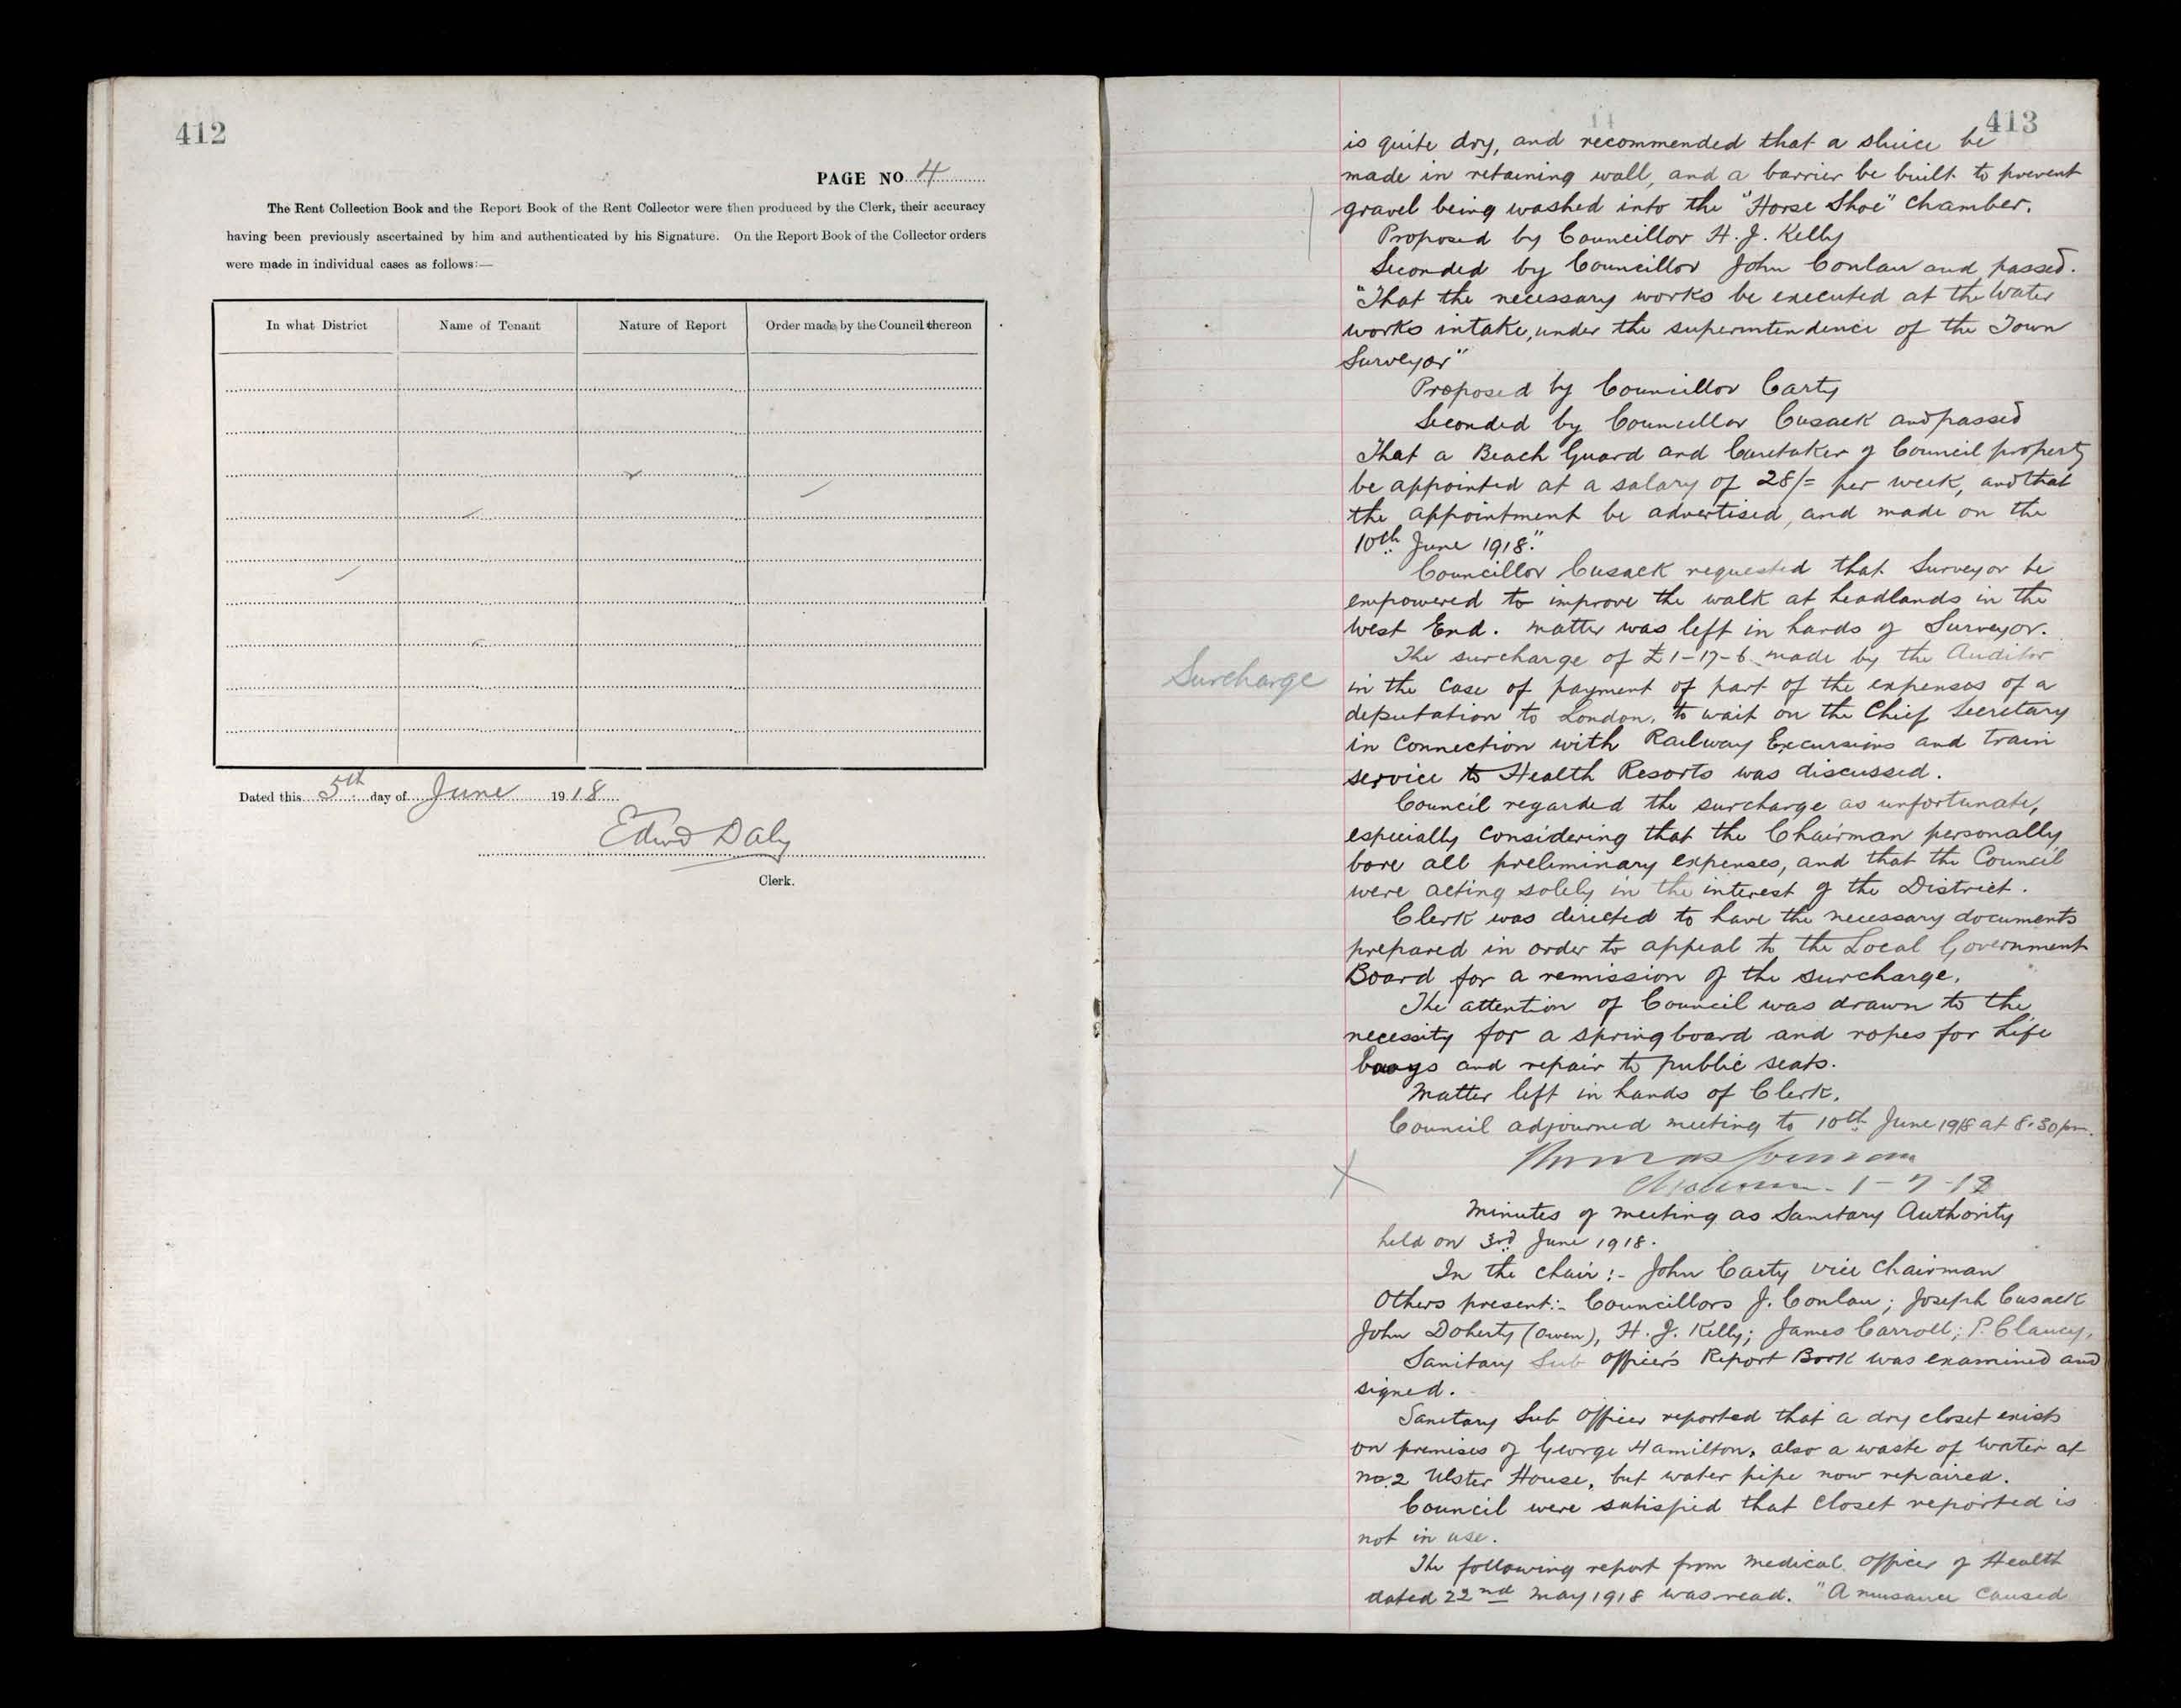 412
PAGE NO. 4
The Rent Collection Book and the Report Book of the Rent Collector were then produced by the Clerk, their accuracy
having been previously ascertained by him and authenticated by his Signature. On the Report Book of the Collector orders
were made in individual cases as follows:—
In what District
Name of Tenant
Nature of Report
Order made by the Council thereon
Dated this 5th day of June 1918
Edwd Daly
Clerk.
413
is quite dry, and recommended that a sluice be
made in retaining wall, and a barrier be built to prevent
gravel being washed into the "Horse Shoe" chamber.
Proposed by Councillor H. J. Kelly
Seconded by Councillor John Conlan and passed.
"That the necessary works be executed at the Water
works intake, under the superintendence of the Town
Surveyor"
Proposed by Councillor Carty
Seconded by Councillor Cusack and passed
That a Beach Guard and Caretaker of Council property
be appointed at a salary of 28/= per week, and that
the appointment be advertised, and made on the
10th June 1918."
Councillor Cusack requested that Surveyor be
empowered to improve the walk at headlands in the
West End. Matter was left in hands of Surveyor.
Surcharge
The surcharge of £1-17-6 made by the Auditor
in the case of payment of part of the expenses of a
deputation to London, to wait on the Chief Secretary
in connection with Railway Excursions and train
service to Health Resorts was discussed.
Council regarded the surcharge as unfortunate,
especially considering that the Chairman personally
bore all preliminary expenses, and that the Council
were acting solely in the interest of the District.
Clerk was directed to have the necessary documents
prepared in order to appeal to the Local Government
Board for a remission of the surcharge.
The attention of Council was drawn to the
necessity for a springboard and ropes for Life
buoys and repair to public seats.
Matter left in hands of Clerk.
Council adjourned meeting to 10th June 1918 at 8.30 pm.
Thomas
1-7-18
Minutes of meeting as Sanitary Authority
held on 3rd June 1918.
In the chair:- John Carty Vice Chairman
Others present:- Councillors J. Conlan; Joseph Cusack
John Doherty (Owen), H. J. Kelly; James Carroll; P. Clancy,
Sanitary Sub Officer's Report Book was examined and
signed.
Sanitary Sub Officer reported that a dry closet exists
on premises of George Hamilton, also a waste of water at
No. 2 Ulster House, but water pipe now repaired.
Council were satisfied that closet reported is
not in use.
The following report from Medical Officer of Health
dated 22nd May 1918 was read. "A nuisance caused